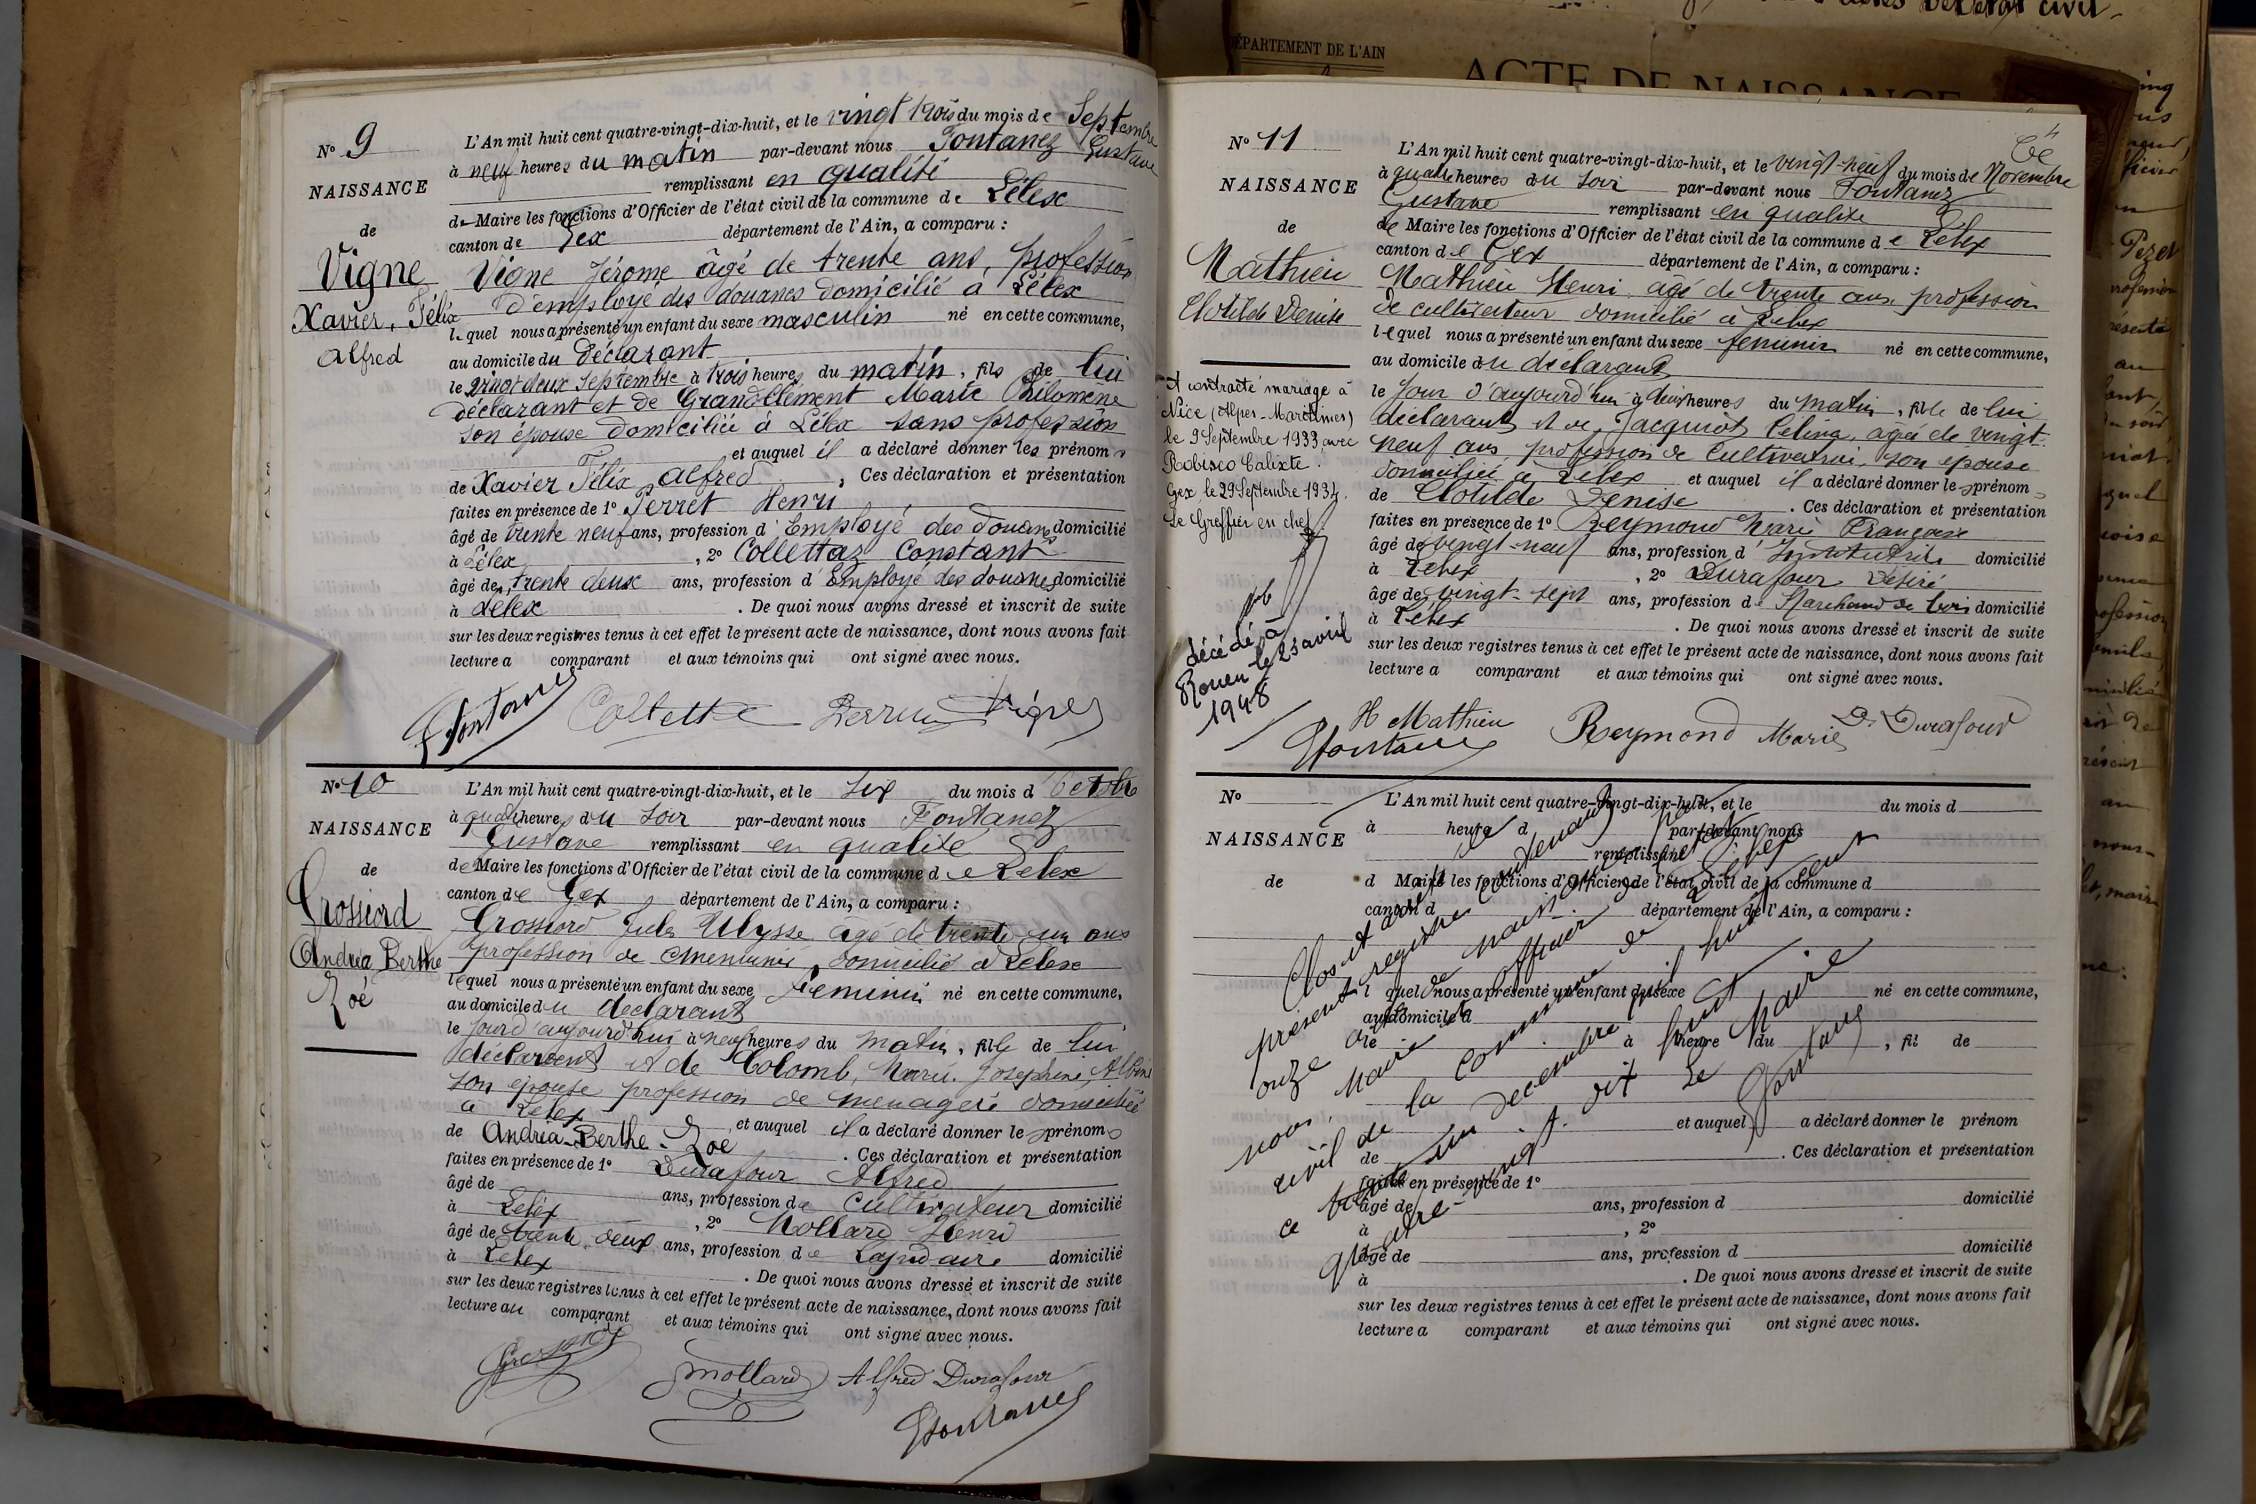 N° 9
NAISSANCE
de
Vigne
Xavier, Félix
Alfred
L'An mil huit cent quatre-vingt-dix-huit, et le vingt trois du mois de Septembre
à neuf heures du matin par-devant nous Fontanez Gustave
remplissant en qualité
de Maire les fonctions d'Officier de l'état civil de la commune de Lélex
canton de Gex département de l'Ain, a comparu :
Vigne Jérome âgé de trente ans, profession
d'employé des douanes domicilié à Lélex
lequel nous a présenté un enfant du sexe masculin né en cette commune,
au domicile du déclarant
le vingt deux Septembre à trois heures du matin, fils de lui
déclarant et de Grandclément Marie Philomène
son épouse domiciliée à Lélex sans profession
et auquel il a déclaré donner les prénoms
de Xavier Félix Alfred, Ces déclaration et présentation
faites en présence de 1° Perret Henri
âgé de trente neuf ans, profession d'Employé des douanes domicilié
à Lélex, 2° Collettaz Constant
âgé de trente deux ans, profession d'Employé des douanes domicilié
à Lélex. De quoi nous avons dressé et inscrit de suite
sur les deux registres tenus à cet effet le présent acte de naissance, dont nous avons fait
lecture a comparant et aux témoins qui ont signé avec nous.
N° 10
NAISSANCE
de
Grossiord
Andréa Berthe
Zoé
L'An mil huit cent quatre-vingt-dix-huit, et le six du mois d'Octobre
à quatre heures du soir par-devant nous Fontanez
Gustave remplissant en qualité
de Maire les fonctions d'Officier de l'état civil de la commune de Lelex
canton de Gex département de l'Ain, a comparu :
Grossiord Jules Ulysse âgé de trente un ans
profession de menuisier domicilié à Lelex
lequel nous a présenté un enfant du sexe féminin né en cette commune,
au domicile du déclarant
le jour d'aujourd'hui à neuf heures du matin, fille de lui
déclarant et de Colomb, Marie Joséphine, Albine
son épouse profession de ménagère domiciliée
à Lelex et auquel il a déclaré donner les prénoms
de Andréa-Berthe-Zoé. Ces déclaration et présentation
faites en présence de 1° Durafour Alfred
âgé de ans, profession de Cultivateur domicilié
à Lelex, 2° Mollard Henri
âgé de trente deux ans, profession de Lapidaire domicilié
à Lelex. De quoi nous avons dressé et inscrit de suite
sur les deux registres tenus à cet effet le présent acte de naissance, dont nous avons fait
lecture au comparant et aux témoins qui ont signé avec nous.
Mollard Alfred Durafour
DÉPARTEMENT DE L'AIN
ACTE DE NAISSANCE
N° 11
NAISSANCE
de
Mathieu
Clotilde Denise
A contracté mariage à
Nice (Alpes-Maritimes)
le 9 Septembre 1933 avec
Robisco Calixte.
Gex, le 29 Septembre 1934.
Le Greffier en chef:
décédée à
Rouen le 23 avril
1948
L'An mil huit cent quatre-vingt-dix-huit, et le vingt-neuf du mois de Novembre
à quatre heures du soir par-devant nous Fontanez
Gustave remplissant en qualité
de Maire les fonctions d'Officier de l'état civil de la commune de Lélex
canton de Gex département de l'Ain, a comparu :
Mathieu Henri âgé de trente ans, profession
de cultivateur domicilié à Lelex
lequel nous a présenté un enfant du sexe féminin né en cette commune,
au domicile du déclarant
le jour d'aujourd'hui à deux heures du matin, fille de lui
déclarant et de Jacquiot Célina, âgée de vingt-
neuf ans, profession de Cultivatrice, son épouse
domiciliée à Lélex et auquel il a déclaré donner les prénoms
de Clotilde Denise. Ces déclaration et présentation
faites en présence de 1° Reymond Marie Françoise
âgé de vingt-neuf ans, profession d'Institutrice domicilié
à Lelex, 2° Durafour Désiré
âgé de vingt-sept ans, profession de Marchand de bois domicilié
à Lelex. De quoi nous avons dressé et inscrit de suite
sur les deux registres tenus à cet effet le présent acte de naissance, dont nous avons fait
lecture a comparant et aux témoins qui ont signé avec nous.
H Mathieu Reymond Marie D. Durafour
N°
NAISSANCE
de
L'An mil huit cent quatre-vingt-dix-huit, et le du mois d
à heure d par-devant nous
remplissant
d Maire les fonctions d'Officier de l'état civil de la commune d
canton d département de l'Ain, a comparu :
l quel nous a présenté un enfant du sexe né en cette commune,
au domicile d
le à heure du, fil de
et auquel a déclaré donner le prénom
de. Ces déclaration et présentation
faites en présence de 1°
âgé de ans, profession d domicilié
à, 2°
âgé de ans, profession d domicilié
à. De quoi nous avons dressé et inscrit de suite
sur les deux registres tenus à cet effet le présent acte de naissance, dont nous avons fait
lecture a comparant et aux témoins qui ont signé avec nous.
Clos et arrêté le
présent registre contenant
onze actes de naissance par
nous, Maire et officier de l'état
civil de la commune de Lélex
ce trente un décembre mil huit cent
quatre-vingt-dix huit
Le Maire